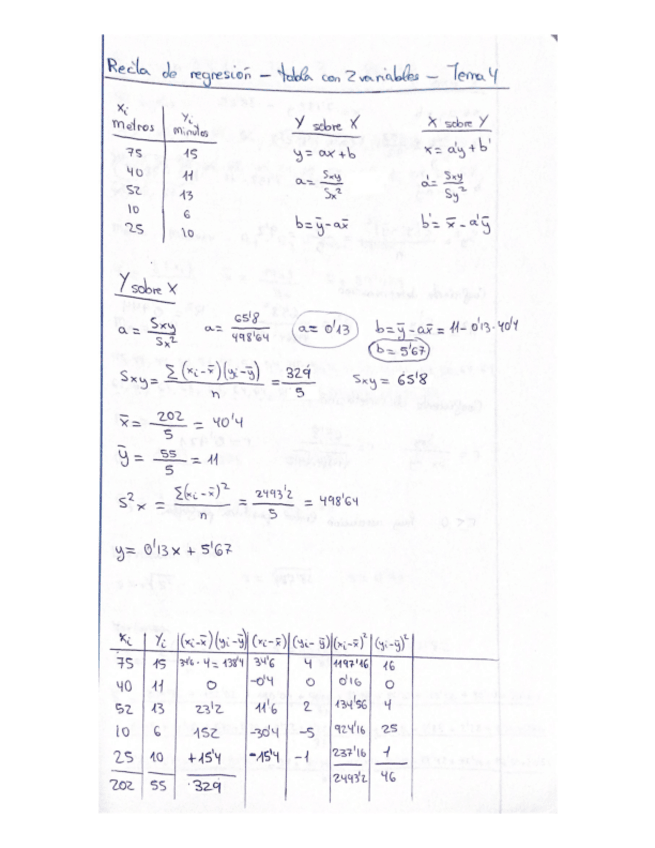 Recta de regresión - tabla con 2 variables - Tema 4
xi metros | Yi minutos
75 | 15
40 | 11
52 | 13
10 | 6
25 | 10
Y sobre X
y = ax + b
a = Sxy / Sx²
b = ȳ - ax̄
X sobre Y
x = a'y + b'
a' = Sxy / Sy²
b' = x̄ - a'ȳ
Y sobre X
a = Sxy / Sx² a = 65'8 / 498'64 a = 0'13 b = ȳ - ax̄ = 11 - 0'13 · 40'4
b = 5'67
Sxy = Σ(xi - x̄)(yi - ȳ) / n = 329 / 5 Sxy = 65'8
x̄ = 202 / 5 = 40'4
ȳ = 55 / 5 = 11
S²x = Σ(xi - x̄)² / n = 2493'2 / 5 = 498'64
y = 0'13x + 5'67
xi | Yi | (xi - x̄)(yi - ȳ) | (xi - x̄) | (yi - ȳ) | (xi - x̄)² | (yi - ȳ)²
75 | 15 | 34'6 · 4 = 138'4 | 34'6 | 4 | 1197'16 | 16
40 | 11 | 0 | -0'4 | 0 | 0'16 | 0
52 | 13 | 23'2 | 11'6 | 2 | 134'56 | 4
10 | 6 | 152 | -30'4 | -5 | 924'16 | 25
25 | 10 | +15'4 | -15'4 | -1 | 237'16 | 1
202 | 55 | 329 | 2493'2 | 46